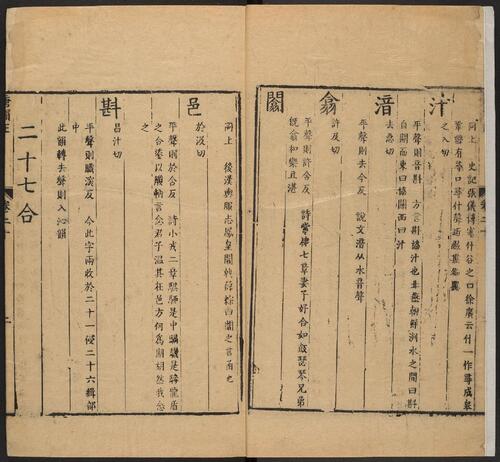 汁
同上　史記張儀傳塞什谷之口徐廣云付一作尋成皋
鞏縣有尋口尋什聲近
之入切
平聲則音斟　方言斟協汁也北燕朝鮮洌水之間曰斟
自關而東曰協關西曰汁
湆
去急切
平聲則去今反　說文湆从水音聲
翕
許及切
平聲則許含反　詩常棣七章妻子好合如鼓瑟琴兄弟
既翕和樂且湛
闟
同上　後漢輿服志鳳皇闟戟薛綜曰闟之言函也
邑
於汲切
平聲則於含反　詩小戎二章騏駵是中騧驪是驂龍盾
之合鋈以觼軜言念君子溫其在邑方何爲期胡然我念
之
斟
昌汁切
平聲則職深反　今此字兩收於二十一侵二十六緝部
中
此韻轉去聲則入沁韻
二十七合
唐韻正